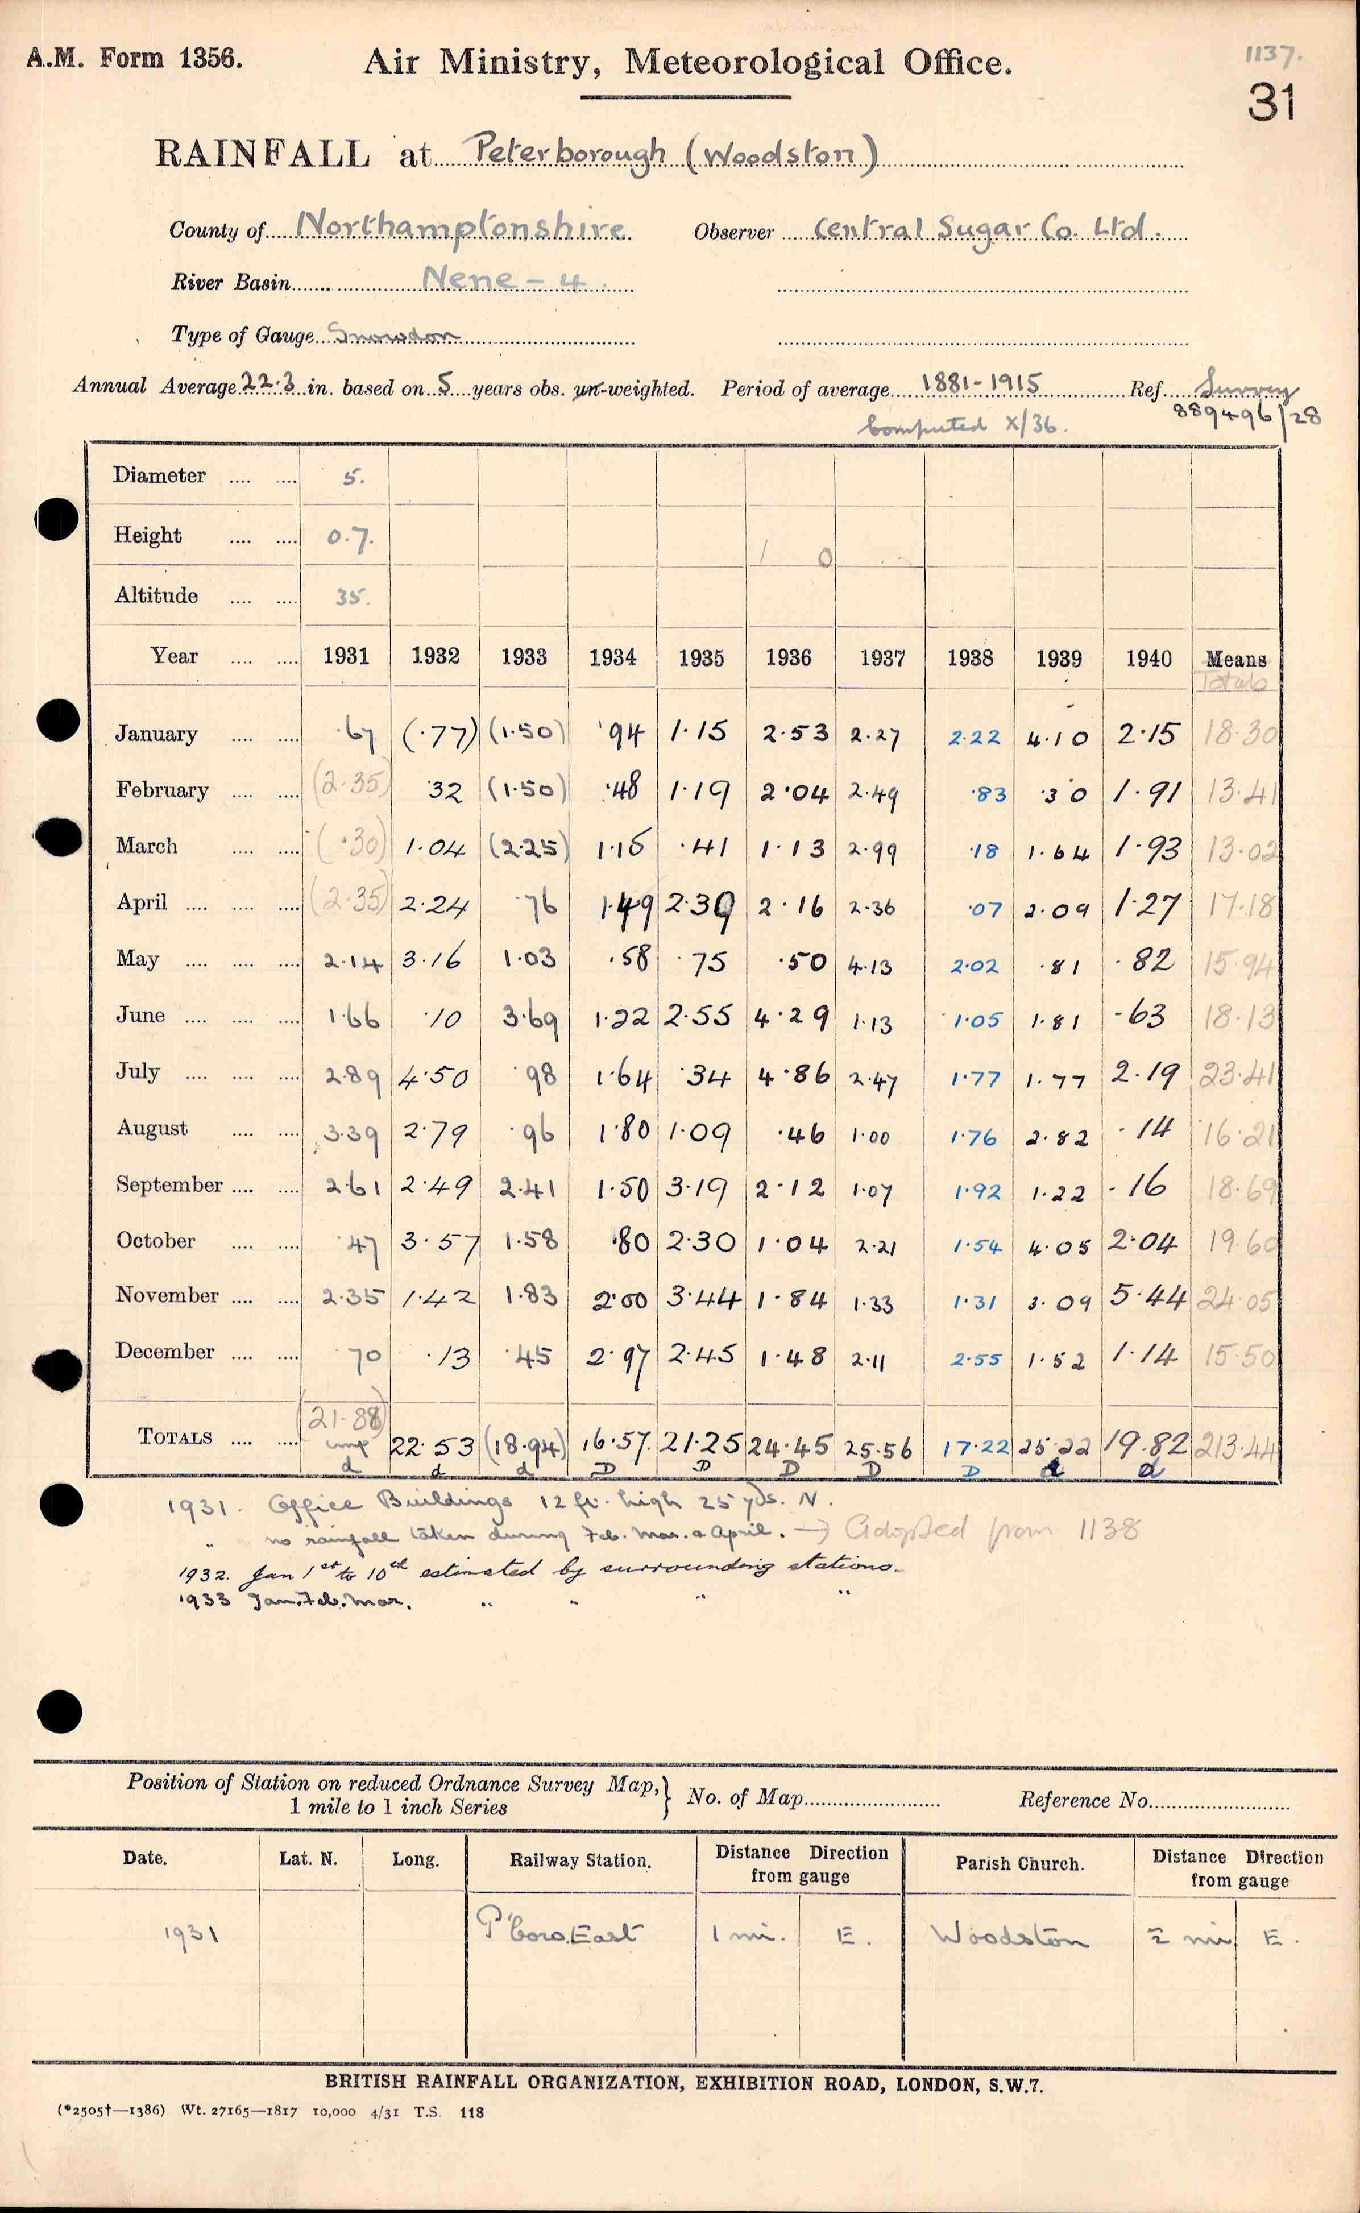 A.M. Form 1356.
Air Ministry, Meteorological Office.
1137.
31
RAINFALL at Peterborough (Woodston)
County of Northamptonshire Observer Central Sugar Co. Ltd.
River Basin Nene - 4.
Type of Gauge Snowdon
Annual Average 22.3 in. based on 5 years obs. un-weighted. Period of average 1881-1915 Ref. Survey
Computed X/36. 889496/28
Diameter 5.
Height 0.7. 1 0
Altitude 35.
Year 1931 1932 1933 1934 1935 1936 1937 1938 1939 1940 Means
Totals
January .67 (.77) (1.50) .94 1.15 2.53 2.27 2.22 4.10 2.15 18.30
February (2.35) .32 (1.50) .48 1.19 2.04 2.49 .83 .30 1.91 13.41
March (.30) 1.04 (2.25) 1.15 .41 1.13 2.99 .18 1.64 1.93 13.02
April (2.35) 2.24 .76 1.49 2.39 2.16 2.36 .07 2.09 1.27 17.18
May 2.14 3.16 1.03 .58 .75 .50 4.13 2.02 .81 .82 15.94
June 1.66 .10 3.69 1.22 2.55 4.29 1.13 1.05 1.81 .63 18.13
July 2.89 4.50 .98 1.64 .34 4.86 2.47 1.77 1.77 2.19 23.41
August 3.39 2.79 .96 1.80 1.09 .46 1.00 1.76 2.82 .14 16.21
September 2.61 2.49 2.41 1.50 3.19 2.12 1.07 1.92 1.22 .16 18.69
October .47 3.57 1.58 .80 2.30 1.04 2.21 1.54 4.05 2.04 19.60
November 2.35 1.42 1.83 2.00 3.44 1.84 1.33 1.31 3.09 5.44 24.05
December .70 .13 .45 2.97 2.45 1.48 2.11 2.55 1.52 1.14 15.50
(21.88)
TOTALS 22.53 (18.94) 16.57 21.25 24.45 25.56 17.22 25.22 19.82 213.44
d d d D D D D D d d
1931. Office Buildings 12 ft. high 25 yds. N.
" no rainfall taken during Feb. Mar. & April. → Adopted from 1138
1932. Jan 1st to 10th estimated by surrounding stations.
1933 Jan. Feb. Mar. " " " "
Position of Station on reduced Ordnance Survey Map, } No. of Map Reference No.
1 mile to 1 inch Series
Date. Lat. N. Long. Railway Station. Distance Direction from gauge Parish Church. Distance Direction from gauge
1931 P'boro. East 1 mi. E. Woodston ½ mi E.
BRITISH RAINFALL ORGANIZATION, EXHIBITION ROAD, LONDON, S.W.7.
(*2505†—1386) Wt. 27165—1817 10,000 4/31 T.S. 118